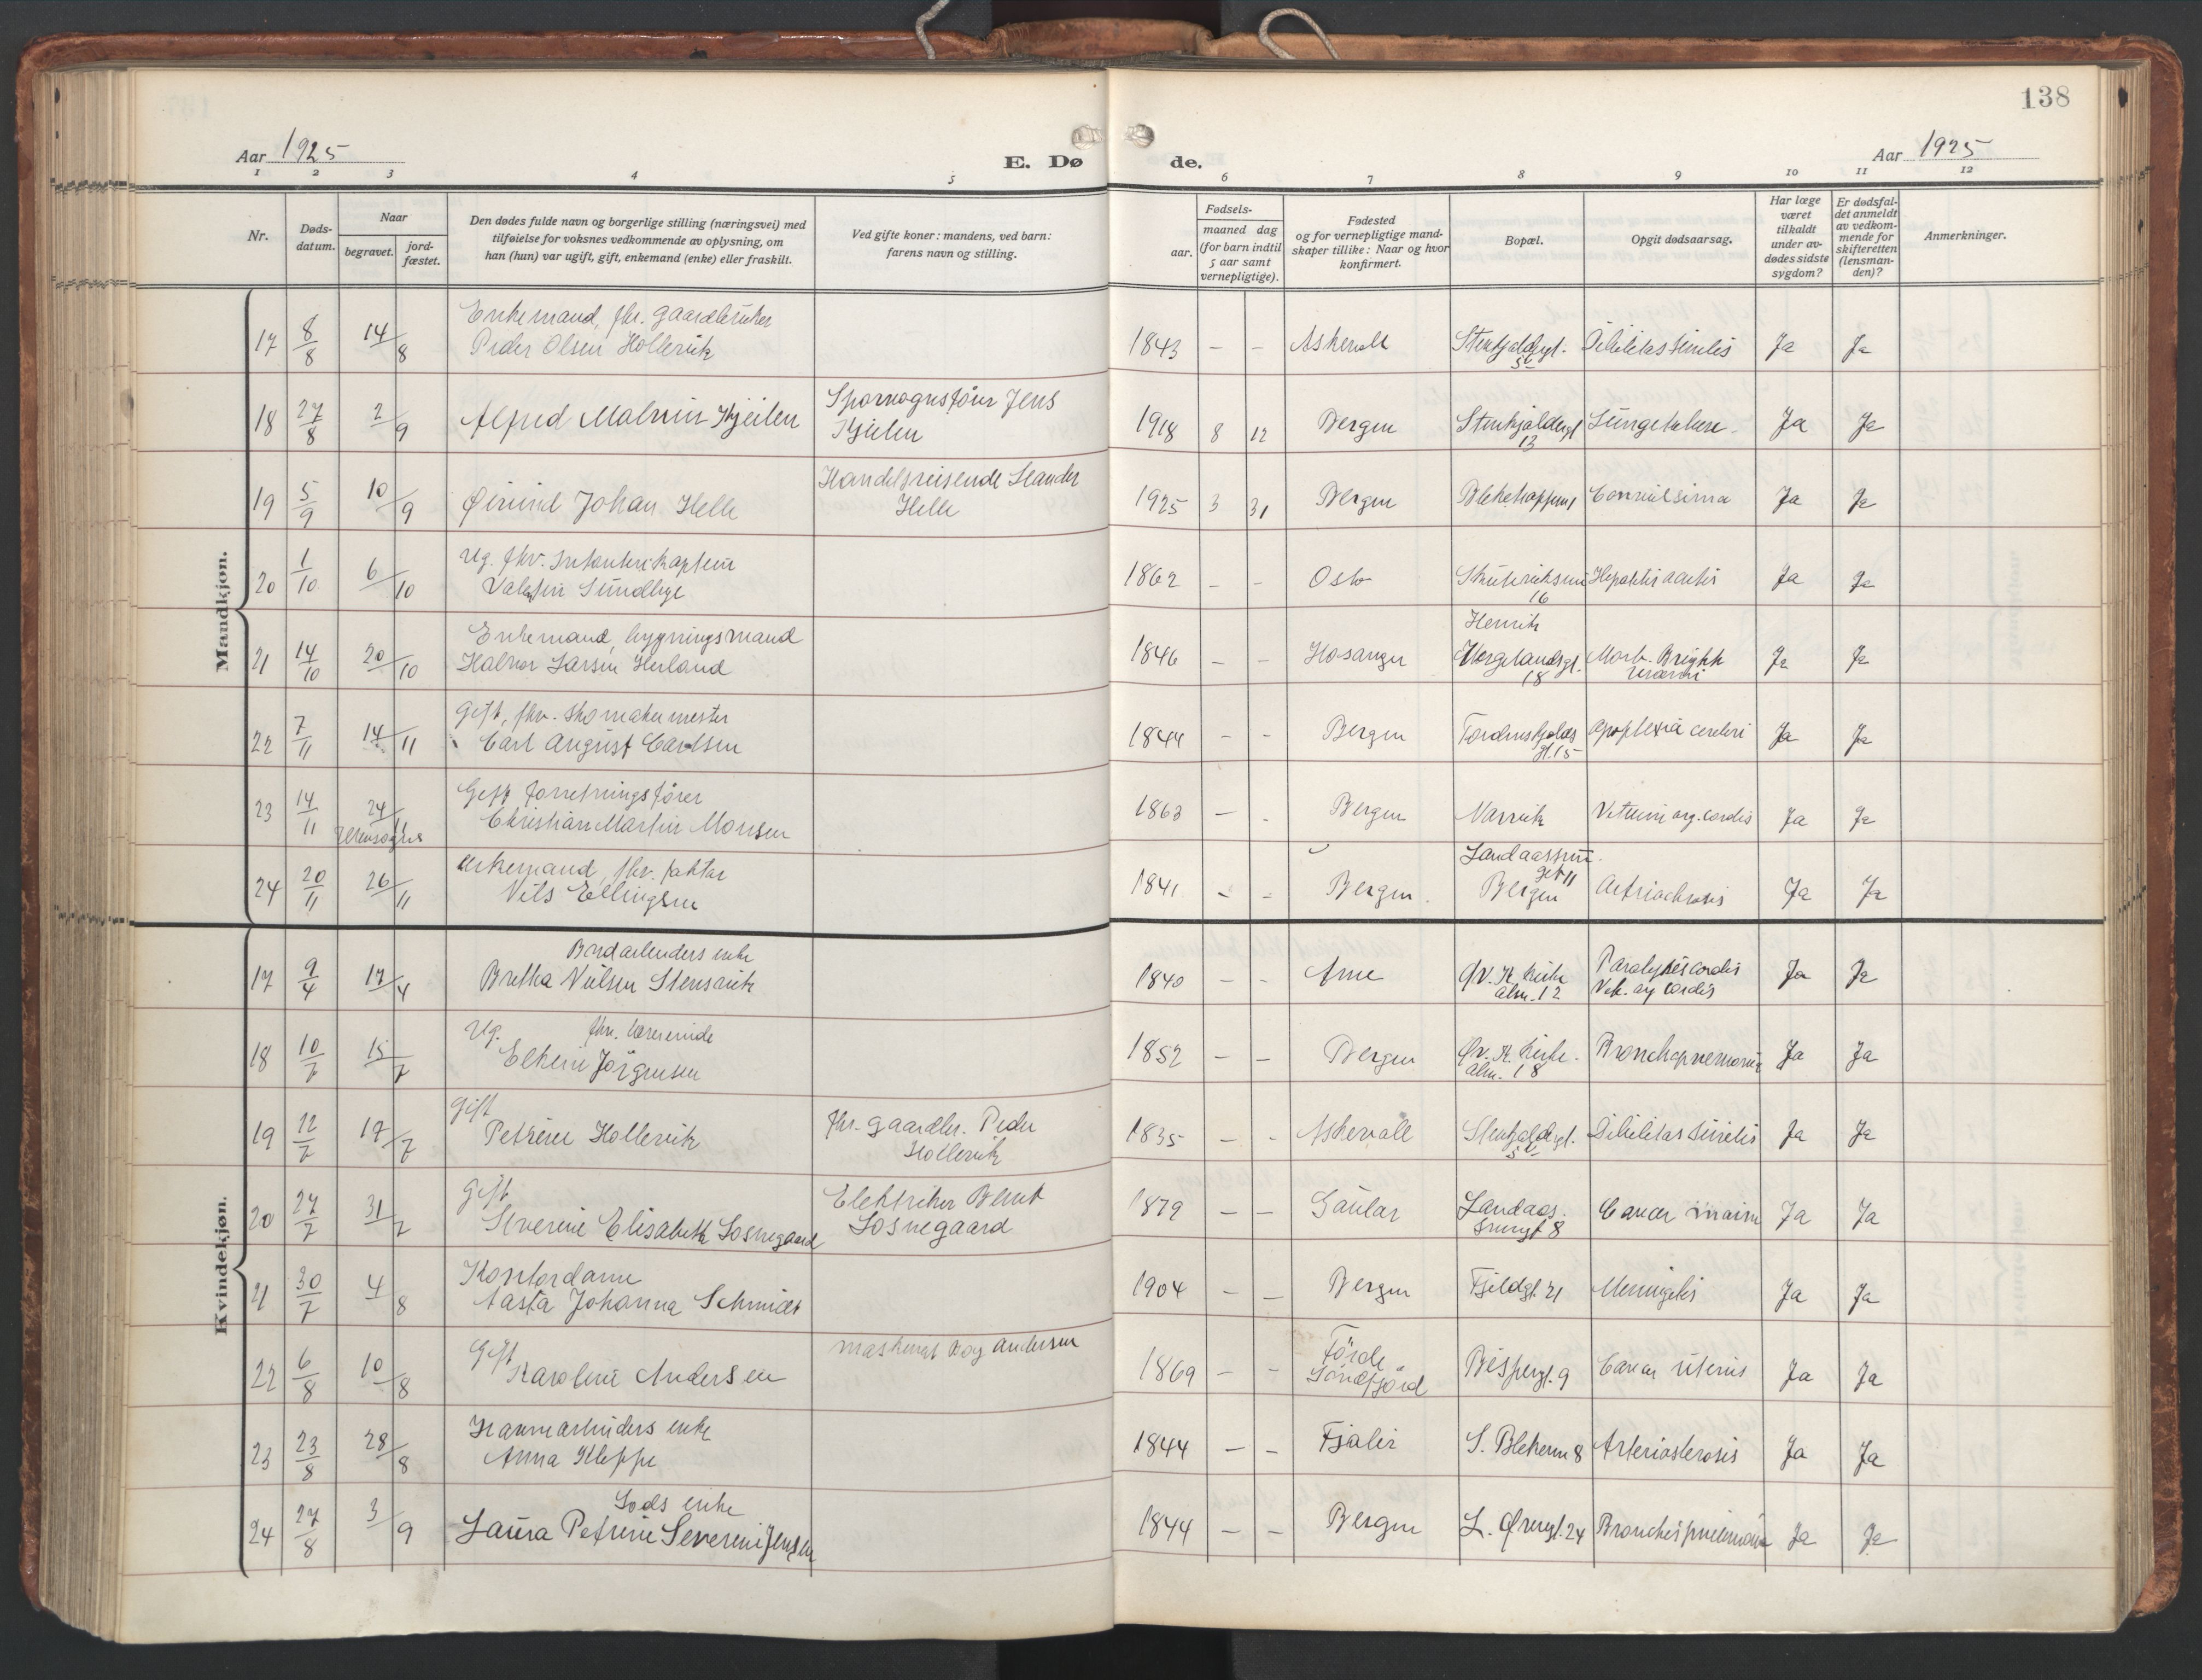 138
Aar 1925
E. Dø
de.
Aar 1925
1 2 3 4 5 6 7 8 9 10 11 12
Nr.
Døds-
datum.
Naar
begravet.
jord-
fæstet.
Den dødes fulde navn og borgerlige stilling (næringsvei) med
tilføielse for voksnes vedkommende av oplysning, om
han (hun) var ugift, gift, enkemand (enke) eller fraskilt.
Ved gifte koner: mandens, ved barn:
farens navn og stilling.
Fødsels-
aar.
maaned dag
(for barn indtil
5 aar samt
vernepligtige).
Fødested
og for vernepligtige mand-
skaper tillike: Naar og hvor
konfirmert.
Bopæl.
Opgit dødsaarsag.
Har læge
været
tilkaldt
under av-
dødes sidste
sygdom?
Er dødsfal-
det anmeldt
av vedkom-
mende for
skifteretten
(lensman-
den)?
Anmerkninger.
Mandkjøn.
Enkemand, fhv. gaardbruker
17 8/8 14/8 Peder Olsen Hollevik 1843 - - Askevold Stenkjeldergt. Debilitas senilis Ja Ja
Sporvognsfører Jens
18 27/8 2/9 Alfred Malvin Kjeilen Kjeilen 1918 8 12 Bergen Stenkjeldergt 13 Ja Ja
Handelsreisende Leander
19 5/9 10/9 Øivind Johan Helle Helle 1925 3 31 Bergen Ja Ja
Ug. fhv. Infanterikaptein
20 1/10 6/10 Valentin Sundbye 1862 - - Oslo 16 Hepatitis acutis Ja Ja
Enkemand, bygningsmand Henrik
21 14/10 20/10 Halvor Larsen Herland 1846 - - Hosanger Wergelandsgt. 18 Morb. Brightii Ja Ja
Gift, fhv. skomakermester
22 7/11 14/11 Carl August Carlsen 1844 - - Bergen Tordenskjolds gt. 15 Apoplexia cerebri Ja Ja
Gift forretningsfører
23 14/11 24/11 Christian Martin Monsen 1863 - - Bergen Narvik Vitium org. cordis Ja Ja
enkemand, fhv. faktor
24 20/11 26/11 Nils Ellingsen 1841 - - Bergen Bergen Ja Ja
Kvindekjøn.
enke
17 9/4 17/4 Bretha Nilsen Stensvik 1840 - - Arne alm. 12 Paralysis cordis Vit. org cordis Ja Ja
Ug. fhv. lærerinde
18 10/7 15/7 Jörgensen 1852 - - Bergen alm. 18 Ja Ja
Gift
19 12/7 17/7 Petrine Hollevik fhv. gaardbr. Peder Hollevik 1835 - - Askevold Stenkjeldergt. Debilitas senilis Ja Ja
Gift
20 27/7 31/7 Severine Elisabeth Sosnegaard Elektriker Bernt Sosnegaard 1879 - - Gaular Landaas- svingt 8 Cancer Ja Ja
Kontordame
21 30/7 4/8 Aasta Johanna Schmidt 1904 - - Bergen Fjeldgt. 21 Meningitis Ja Ja
Gift
22 6/8 10/8 Karoline Andersen Andersen 1869 - - Förde Söndfjord Bispengt. 9 Cancer uterus Ja Ja
enke
23 23/8 28/8 Anna Kleppe 1844 - - Fjaler S. Blekevn 8 Arteriosclerosis Ja Ja
Lods enke
24 27/8 3/9 Laura Petrine Severine Jensen 1844 - - Bergen L. Øvregt. 24 Ja Ja